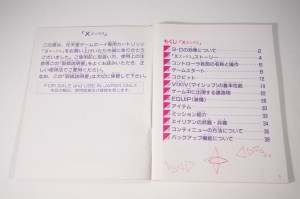 「X エックス」
この度は、任天堂ゲームボーイ専用カートリッジ
「X エックス」をお買い上げいただき誠にありがとう
ございました。ご使用前に取扱い方、使用上の注
意等この「取扱説明書」をよくお読みいただき、正
しい使用法でご愛用ください。
なお、この「取扱説明書」は大切に保管して下さい。
FOR SALE and USE IN JAPAN ONLY
もくじ「X エックス」
3-Dの効果について 2
ストーリー 4
コントローラ各部の名称と操作 6
ゲームスタート 8
コクピット 12
VIXIV(マイシップ)の基本性能 14
ゲーム中に出現する建造物 22
EQUIP(装備) 26
アイテム 32
ミッション紹介 33
エイリアンの武器・兵器 34
コンティニューの方法について 38
バックアップ機能について 38